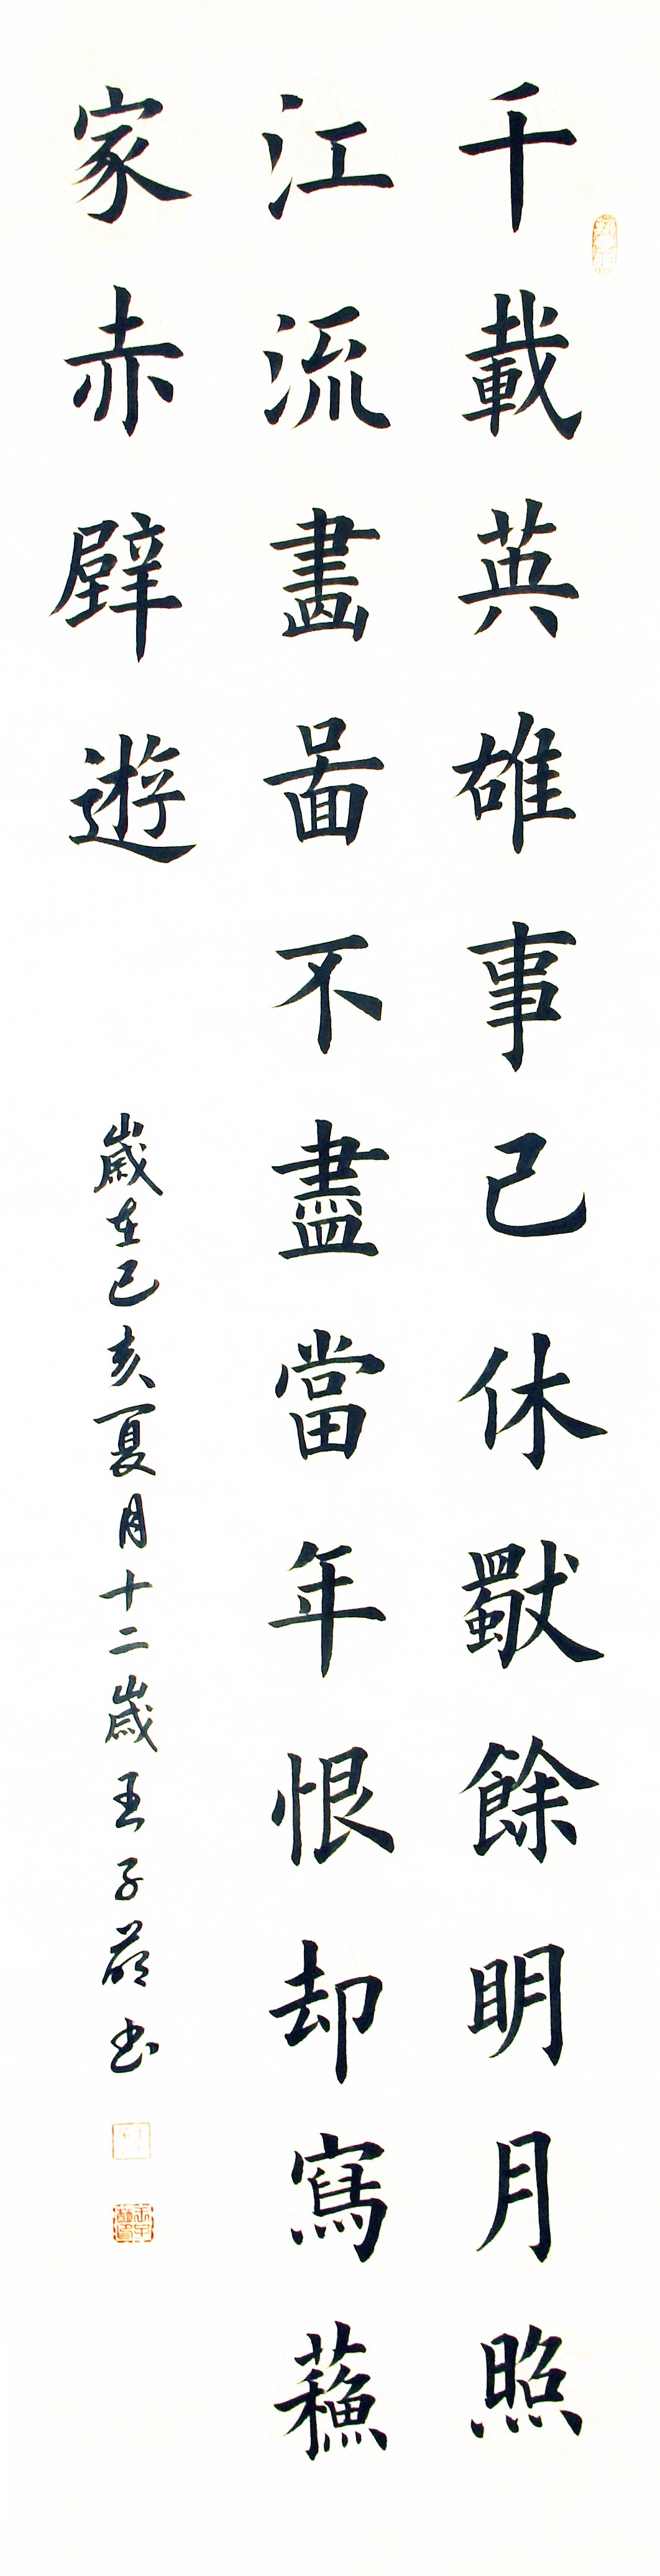 千載英雄事已休獸餘明月照
江流畵啚不盡當年恨却寫蘓
家赤壁遊
歲在己亥夏月十二歲王子蔚书